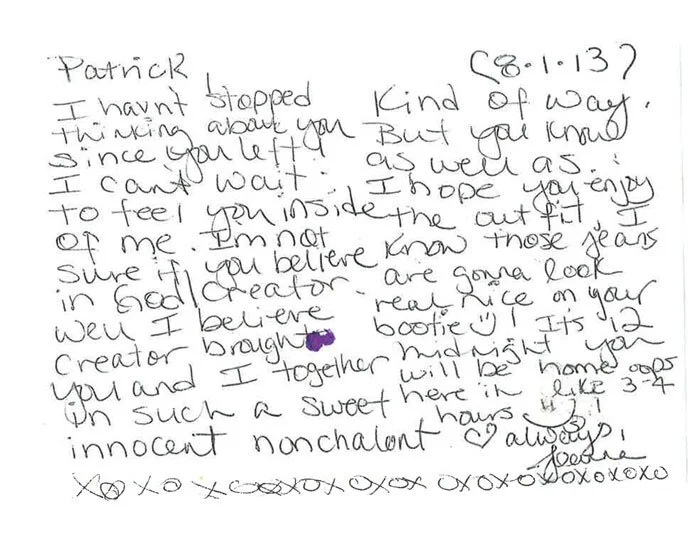 Patrick,
(8.1.13)
I havn't stopped
thinking about you
since you left!
I can't wait
to feel you inside
of me. I'm not
sure if you believe
in God/Creator.
well I believe
Creator brought
you and I together
in such a sweet
innocent nonchalont
kind of way.
But you know
as well as. :
I hope you enjoy
the outfit, I
know those jeans
are gonna look
real nice on your
bootie! It's 12
midnight you
will be home oops
here in like 3-4
hours !
♡ always,
Joanne
XOXO XOXOXOXOXOX OXOXOXOXOXOXOXO